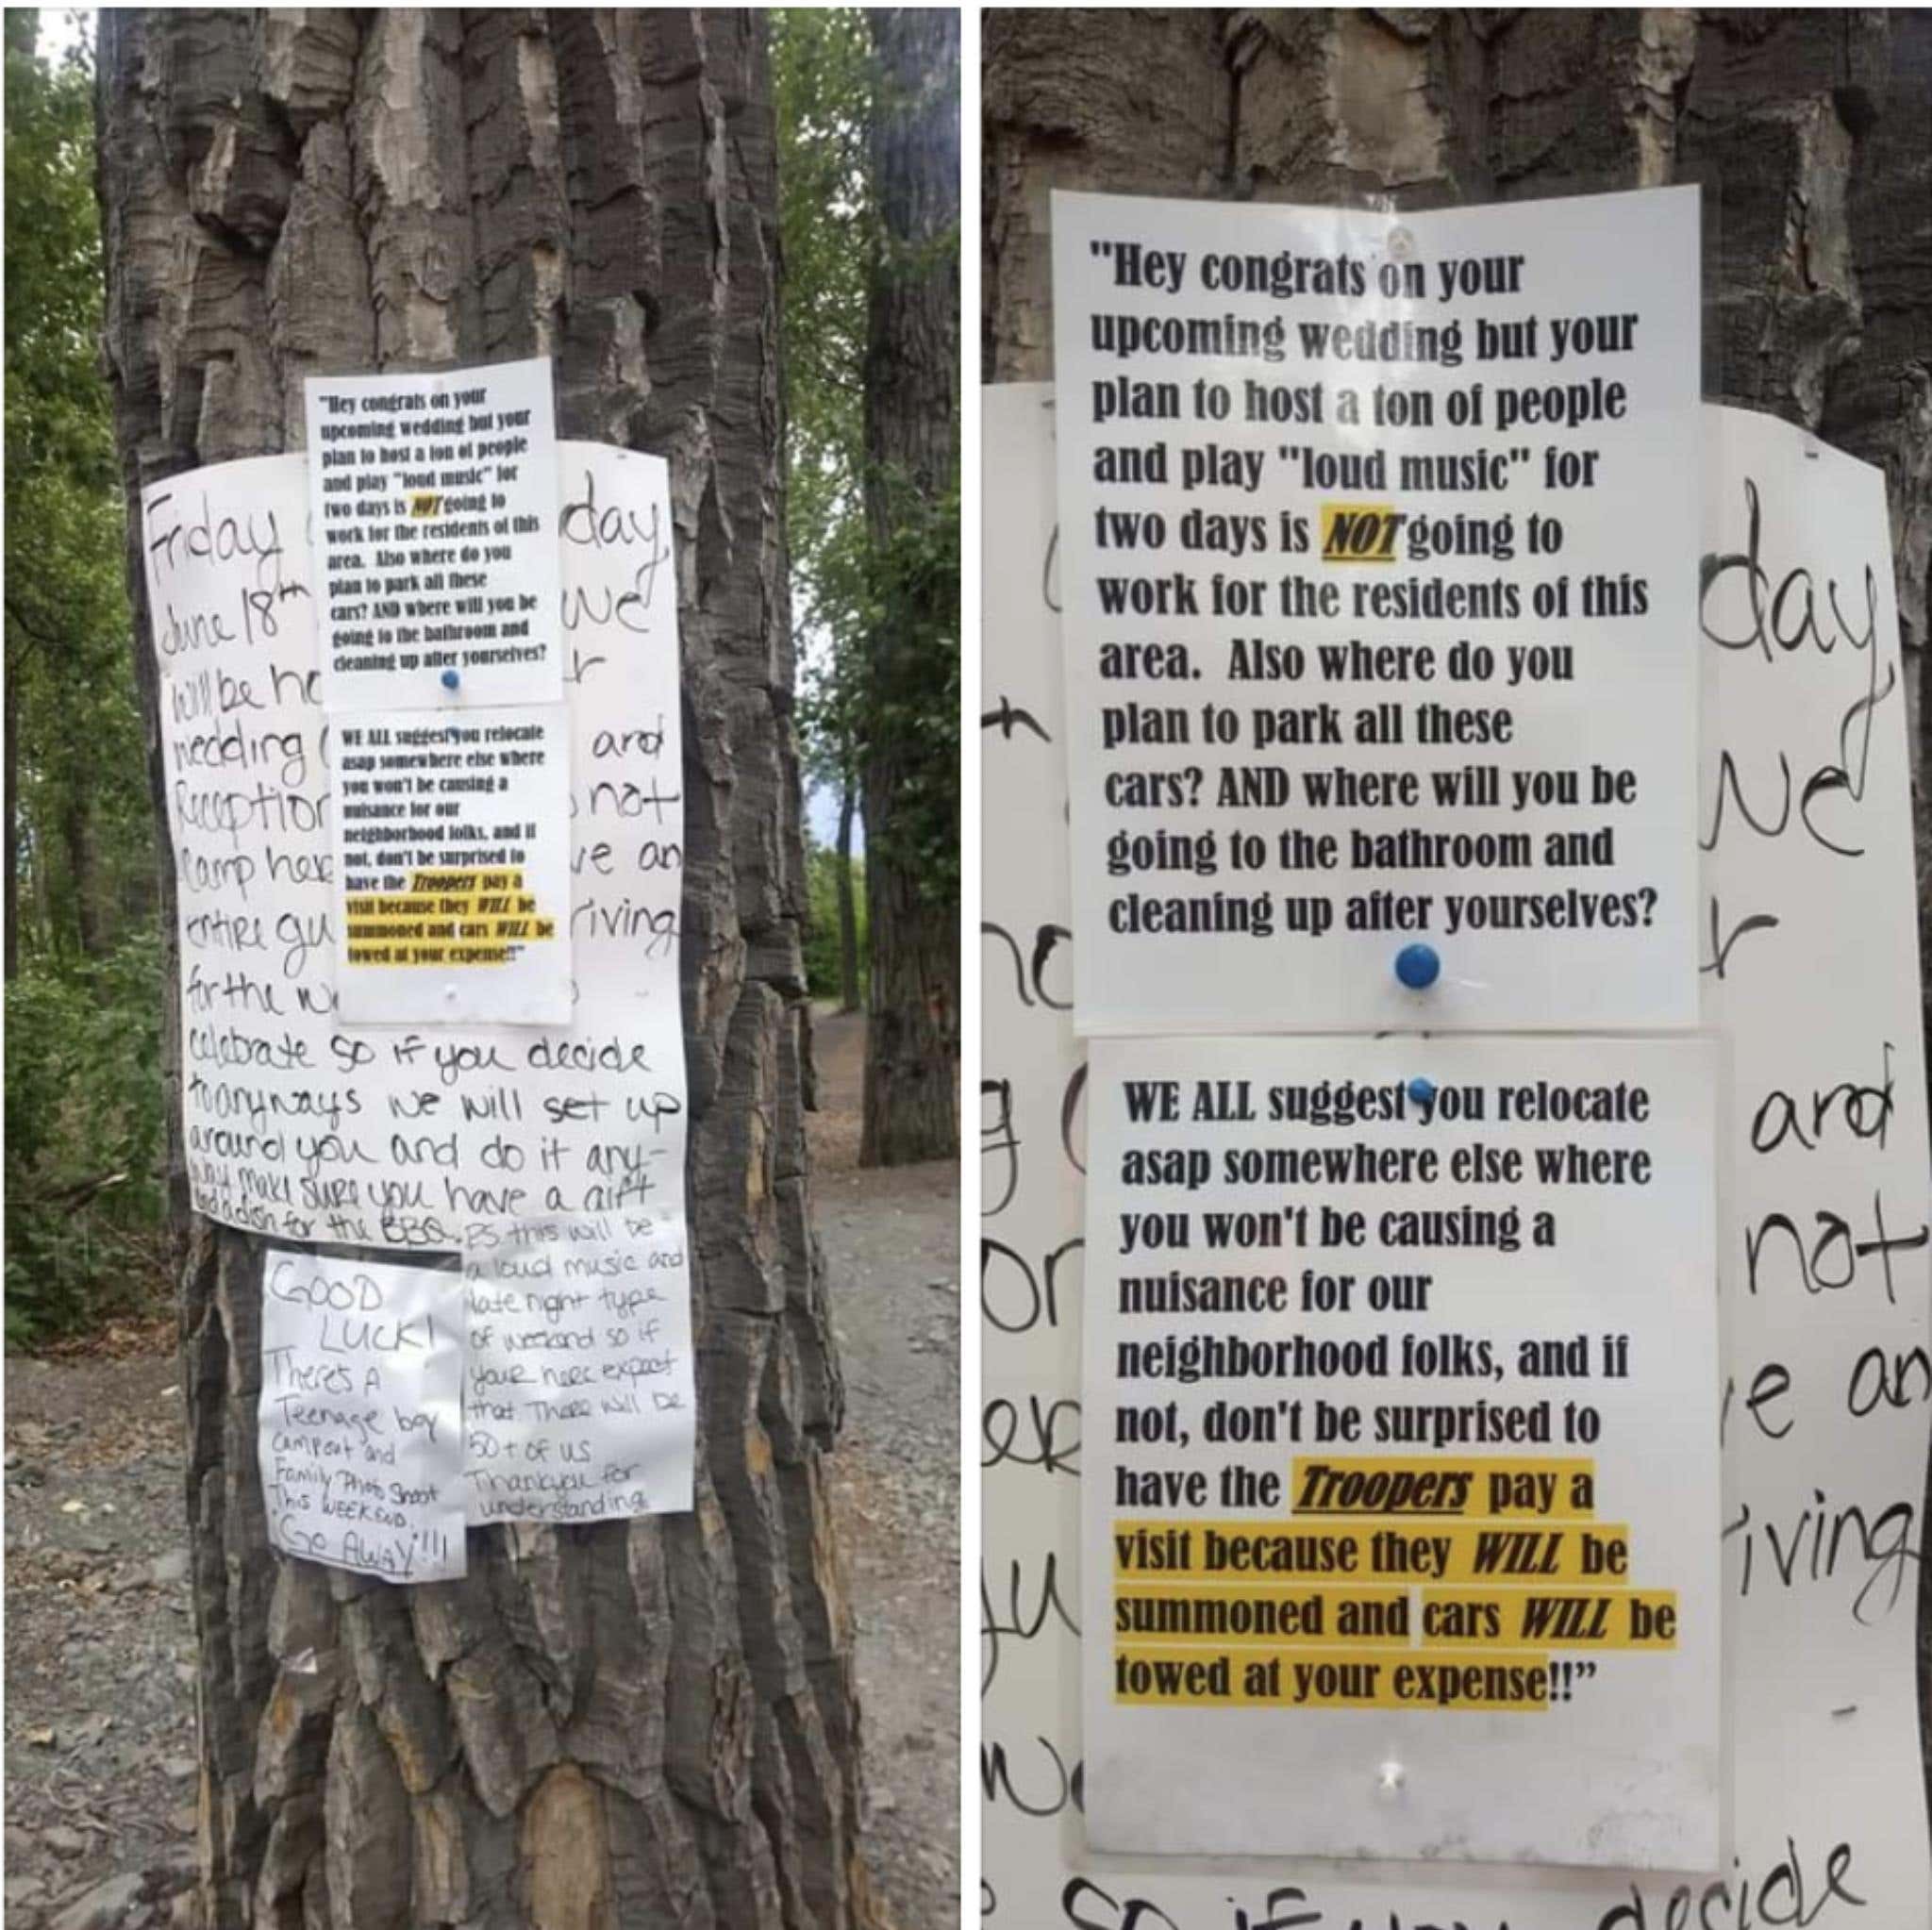 "Hey congrats on your
upcoming wedding but your
plan to host a ton of people
and play "loud music" for
two days is NOT going to
work for the residents of this
area. Also where do you
plan to park all these
cars? AND where will you be
going to the bathroom and
cleaning up after yourselves?
WE ALL suggest you relocate
asap somewhere else where
you won't be causing a
nuisance for our
neighborhood folks, and if
not, don't be surprised to
have the Troopers pay a
visit because they WILL be
summoned and cars WILL be
towed at your expense!!"
Friday day
June 18th We
will be
wedding and
Reception not
Camp here an
entire
for the
celebrate so if you decide
to anyways we will set up
around you and do it any-
way make sure you have a gift
and a dish for the BBQ.
PS this will be
a loud music and
late night type
of weekend so if
your here expect
that There will be
50+ of us
Thankyou for
understanding
GOOD
LUCK!
There's A
Teenage boy
campout and
Family Photo Shoot
This WEEKEND.
Go AWAY!!!
"Hey congrats on your
upcoming wedding but your
plan to host a ton of people
and play "loud music" for
two days is NOT going to
work for the residents of this
area. Also where do you
plan to park all these
cars? AND where will you be
going to the bathroom and
cleaning up after yourselves?
WE ALL suggest you relocate
asap somewhere else where
you won't be causing a
nuisance for our
neighborhood folks, and if
not, don't be surprised to
have the Troopers pay a
visit because they WILL be
summoned and cars WILL be
towed at your expense!!”
day
We
and
not
an
so if you decide